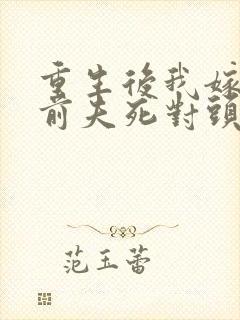 重生後我嫁
前夫死對頭
范玉蕾